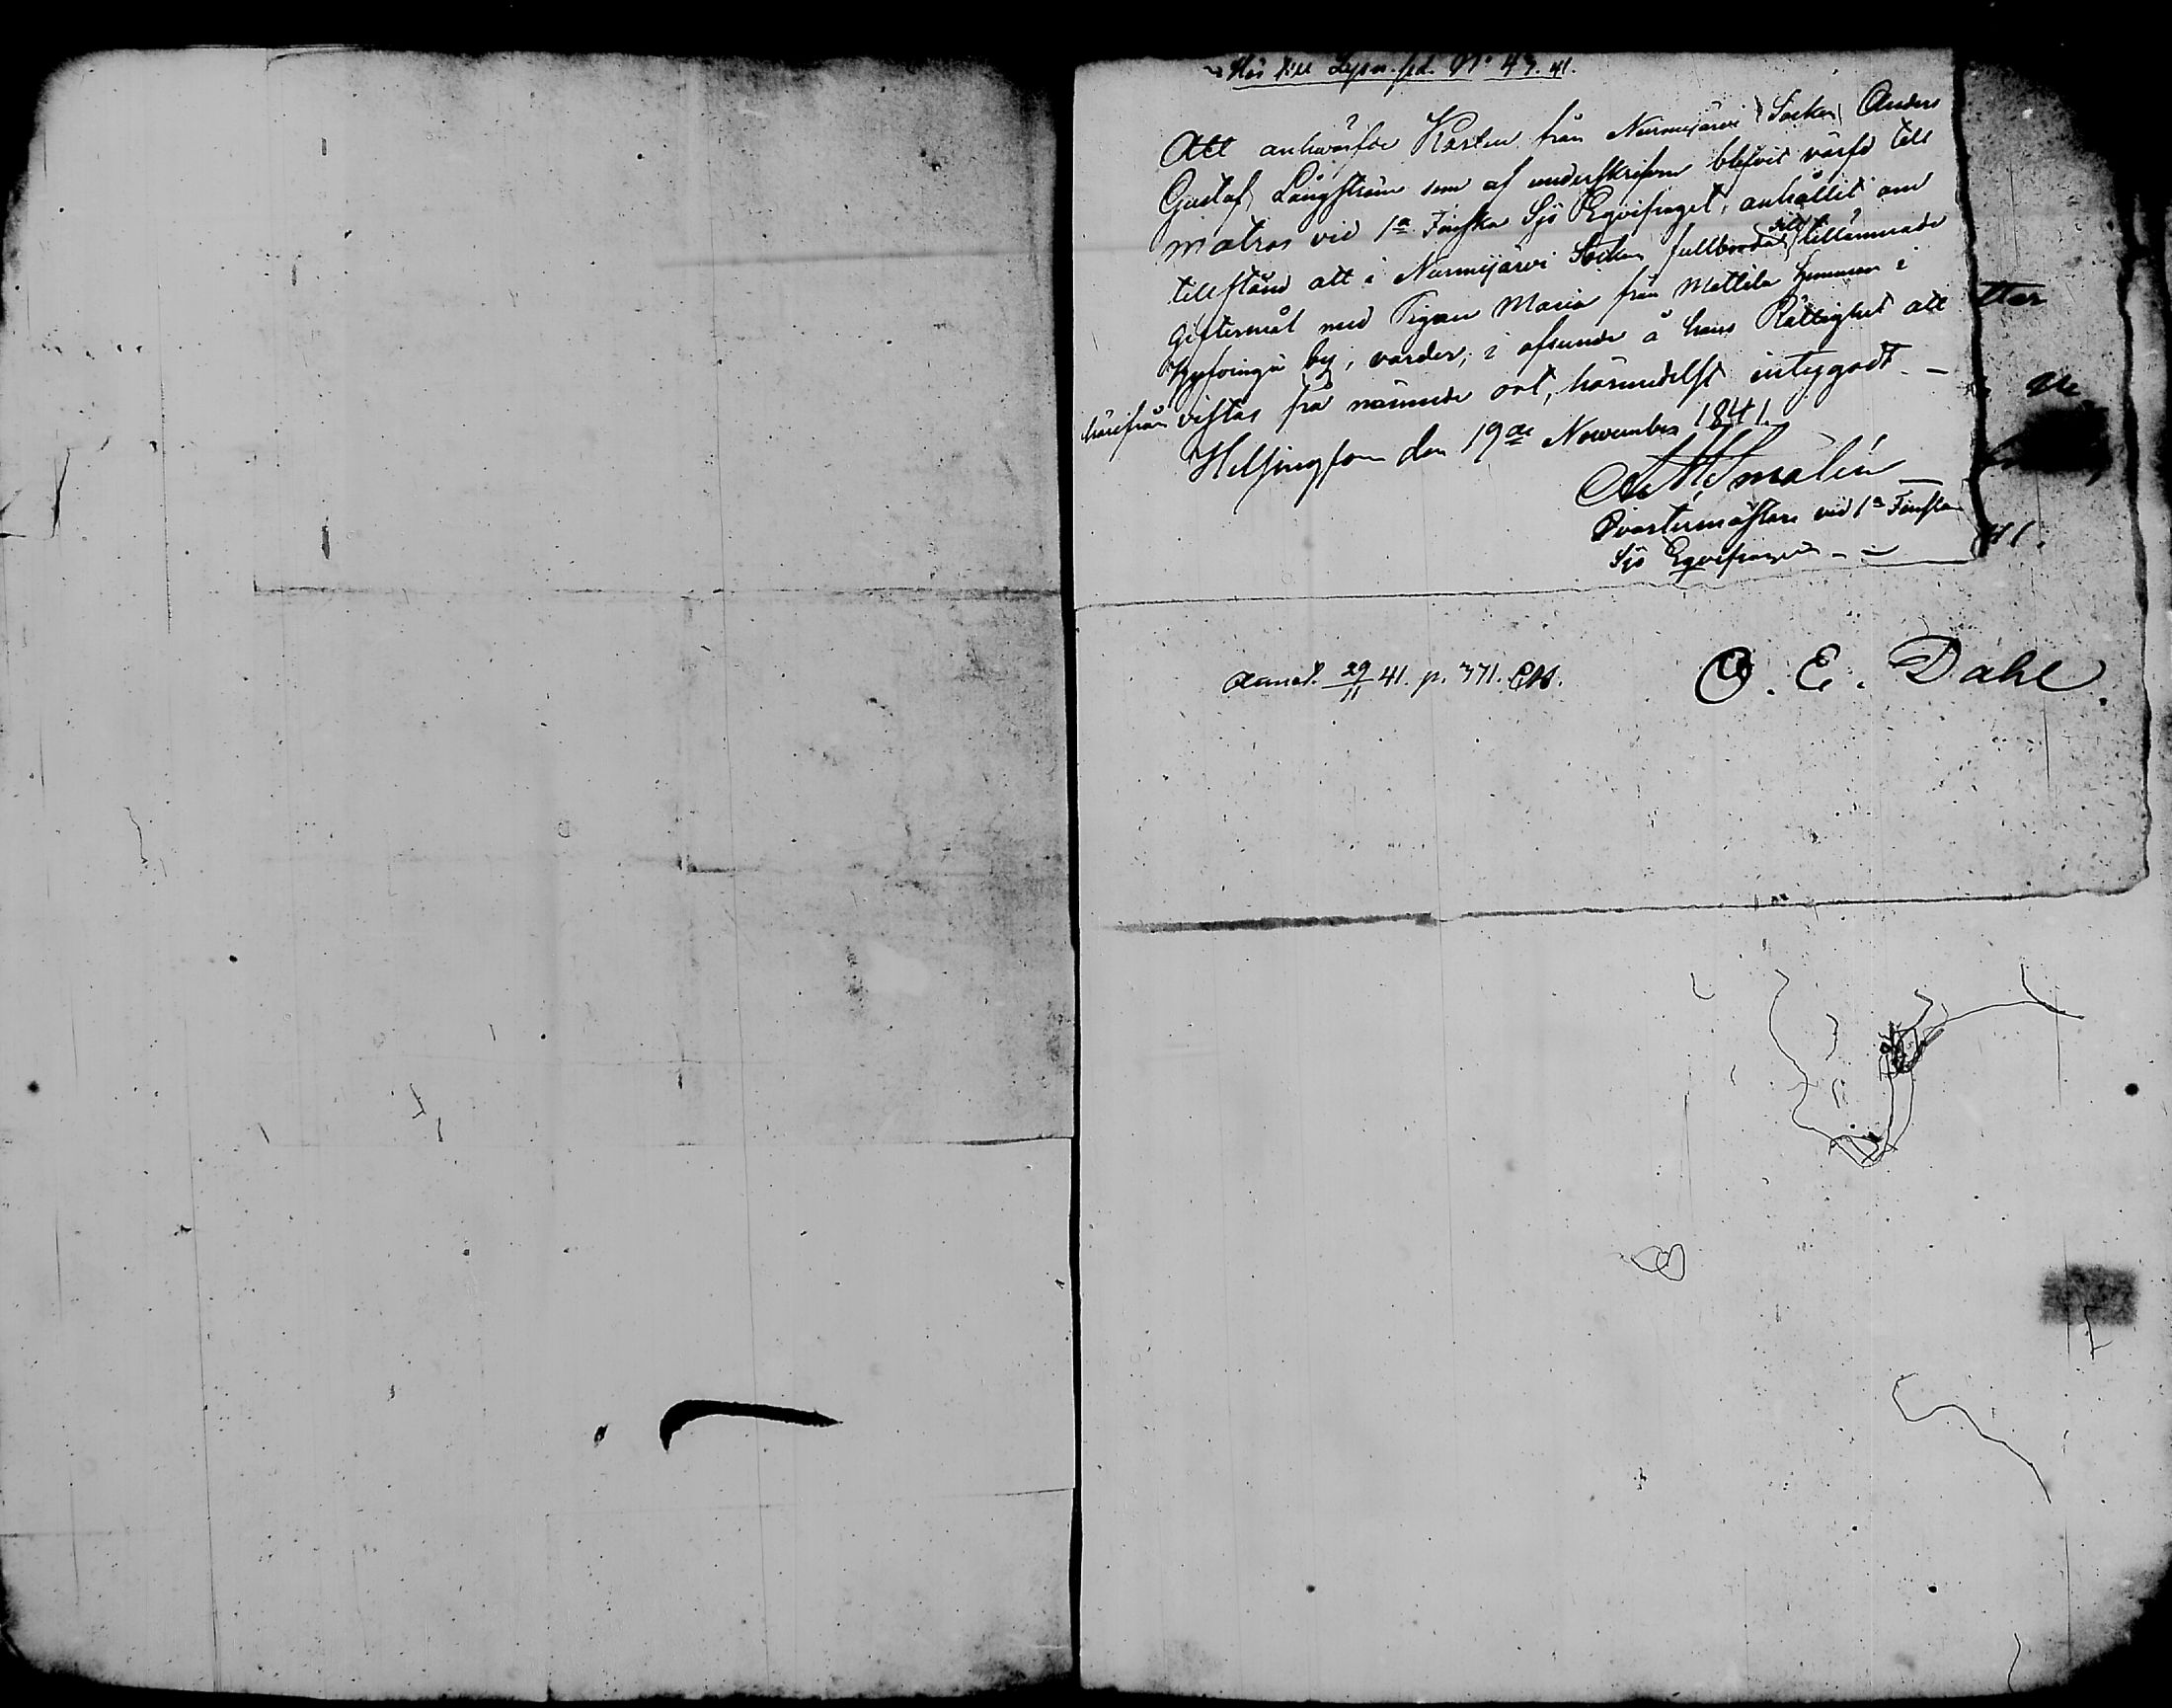 Hör till Lysn. sed. N:o 43. 41.
Att anhvärfde Karlen från Nurmijärvi Socken Anders
Gustaf Långström som af underskrifven blifvit värfd till
matros vid 1a Finska Sjö Eqvipaget, anhållit om
tillstånd att i Nurmijärvi Socken fullborda sitt tillämnade
giftermål med Pigan Maria från Mattila hemman i
by, varder, i afseende å hans Rättighet att
härifrån vistas på nämnde ort, härmedelst intygadt. —
Helsingfors den 19de November 1841.
Malin
Qvartermästare vid 1a Finska
Sjö Eqvipaget - -
ttar
41.
Annot. 29/11 41. p. 371.
O. E. Dahl.